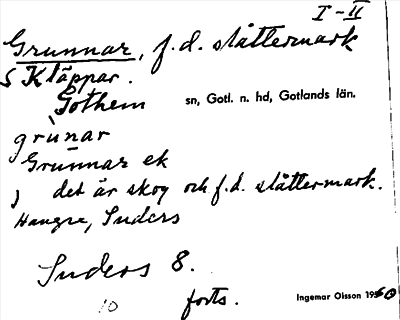 I-II
Grunnar, f.d. slåttermark
S Kläppar.
Gothem sn, Gotl. n. hd, Gotlands län.
grùnar
Grunnar ek
det är skog och f.d. slåttermark.
Hangre, Suders
Suders 8.
10 forts. Ingemar Olsson 1960